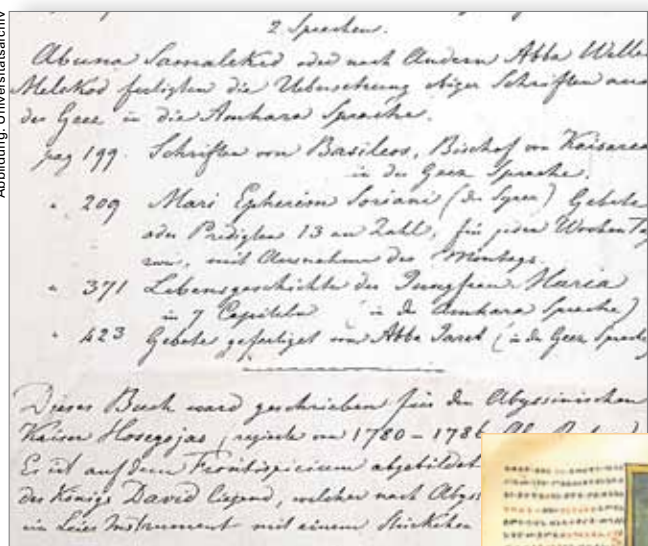 Abbildung: Universitätsarchiv
2 Sprachen.
Abuna Samaleked oder nach Andern Abba Wille
Melekod fertigten die Uebersetzung obiger Schriften aus
der Geez in die Amhara Sprache.
pag 199. Schriften von Basileos, Bischof von Kaisarea
in der Geez Sprache.
" 209 Mari Epherim Soriani (der Syrer) Gebete
oder Predigten 13 an Zahl, für jeden Wochen Ta
mit Ausnahme des Montags.
" 371 Lebensgeschichte der Jungfrau Maria
in 7 Capiteln (in der Amhara Sprache)
" 423 Gebete gefertiget von Abba Jaret (in der Geez Sprache
Dieses Buch ward geschrieben für den Abyssinischen
Kaiser regierte von 1780 – 1786
Er ist auf dem Frontispicium abgebildet
des Königs David welcher nach Abyss
ein Leier Instrument mit einem Stückchen